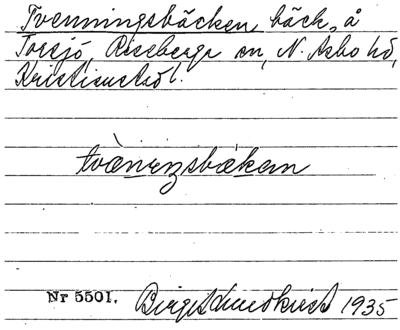 Tvenningsbäcken, bäck, å
Torsjö, Riseberga sn, N. Åsbo hd,
Kristianstad l.
tvæ̀nɩŋsbækɐn
Nr 5501. Birgit Lindkvist 1935